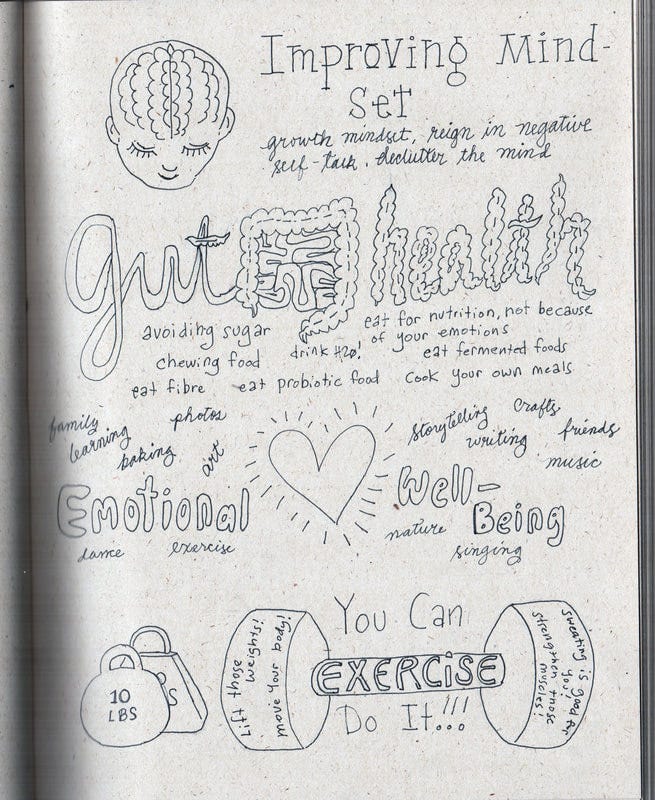 Improving Mind-
Set
growth mindset, reign in negative
self-talk. declutter the mind
gut health
avoiding sugar
chewing food
eat fibre
drink H20!
eat probiotic food
eat for nutrition, not because
of your emotions
eat fermented foods
cook your own meals
family
photos
learning
baking
art
storytelling
crafts
writing
friends
music
Emotional
Well-
Being
dance
exercise
nature
singing
You Can
EXERCISE
Do It!!!
10
LBS
S
Lift those
weights!
move your body!
sweating is good for
you!
strengthen those
muscles!